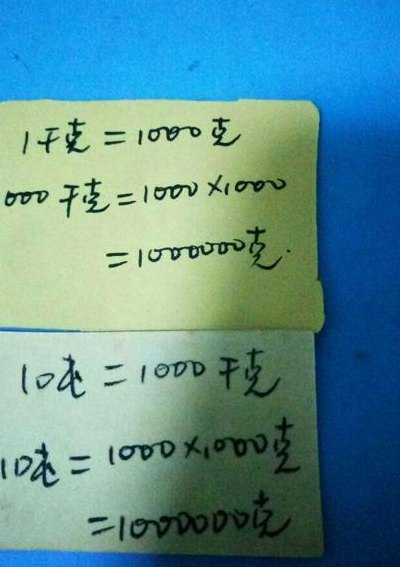 1千克=1000克
000千克=1000×1000
=1000000克.
10吨=1000千克
10吨=1000×1000克
=1000000克